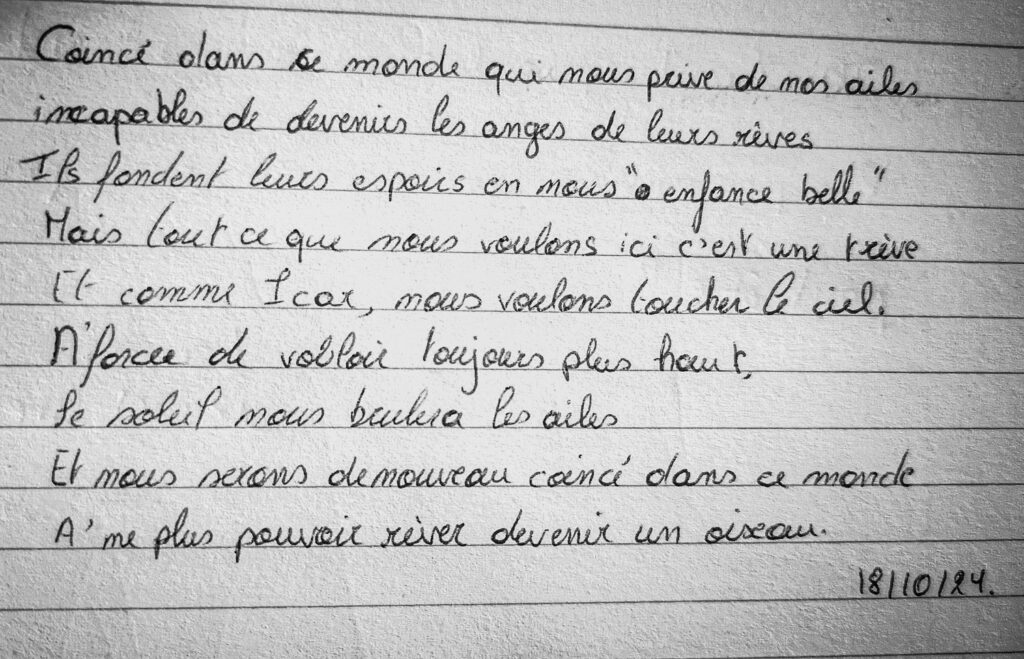 Coincé dans ce monde qui nous prive de nos ailes
incapables de devenirs les anges de leurs rêves
Ils fondent leurs espoirs en nous "ô enfance belle"
Mais tout ce que nous voulons ici c'est une trêve
Et comme Icar, nous voulons toucher le ciel.
A' force de volloir toujours plus haut,
le soleil nous brulera les ailes
Et nous serons denouveau coincé dans ce monde
A' ne plus pouvoir rêver devenir un oiseau.
18/10/24.